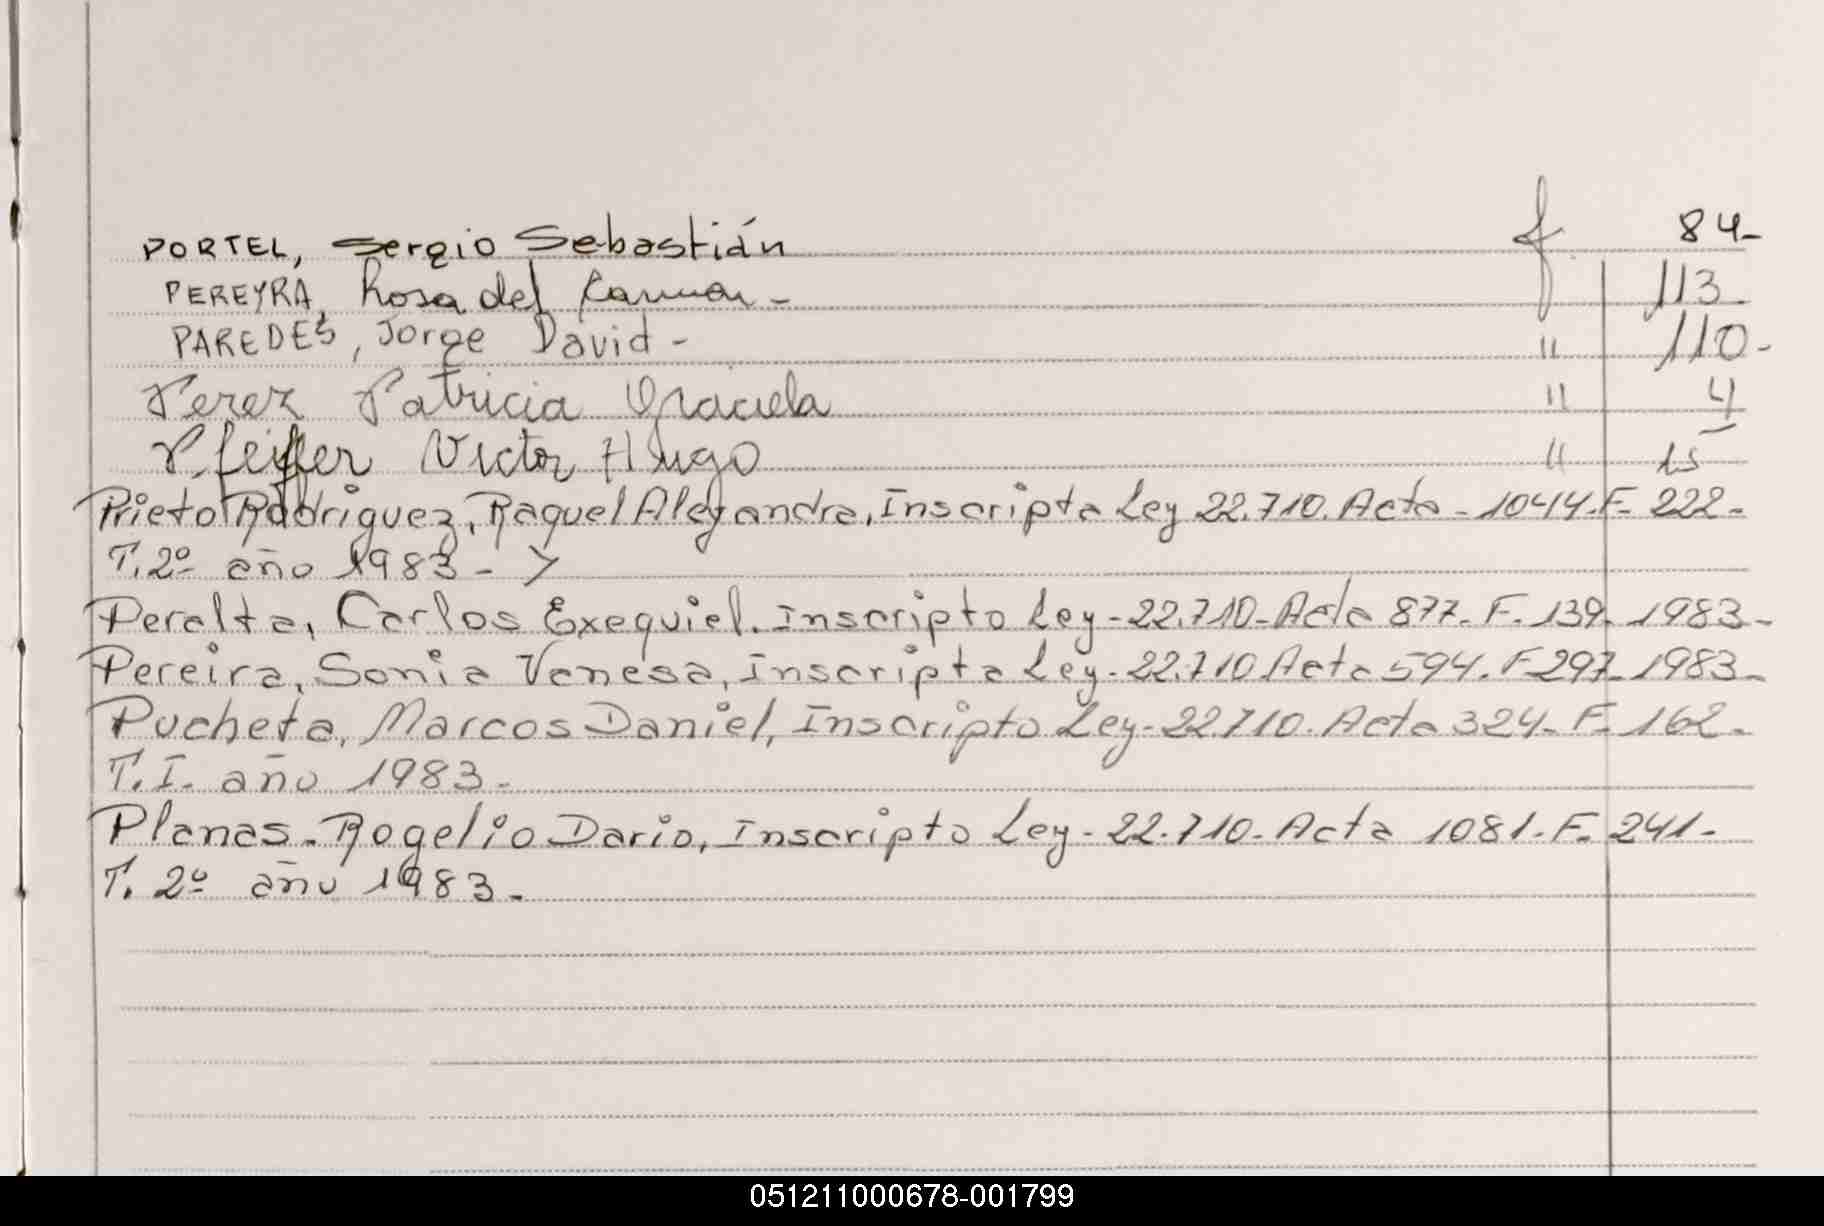 PORTEL, Sergio Sebastián f 84-
PEREYRA, Rosa del Carmen - 113
PAREDES, Jorge David - " 110-
Perez Patricia Graciela " 4
Pfeiffer Victor Hugo " 15
Prieto Rodriguez, Raquel Alejandra, Inscripta Ley 22.710. Acta - 1044. F- 222-
T. 2º año 1983 -
Peralta, Carlos Exequiel. Inscripto Ley - 22.710 - Acta 877- F- 139- 1983-
Pereira, Sonia Vanesa, inscripta Ley - 22.710 Acta 594. F- 297- 1983-
Pucheta, Marcos Daniel, Inscripto Ley - 22.710. Acta 324- F- 162-
T. I. año 1983 -
Planas - Rogelio Dario, Inscripto Ley - 22.710- Acta 1081. F- 241-
T. 2º año 1983 -
051211000678-001799